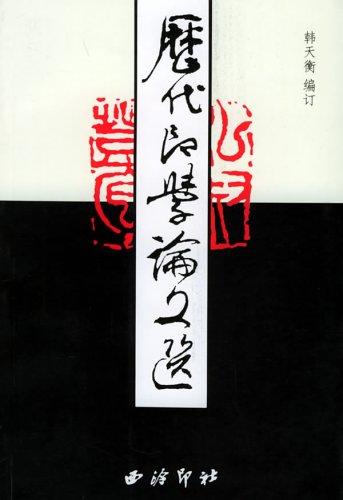 歷代印學論文選
韩天衡 编订
西泠印社